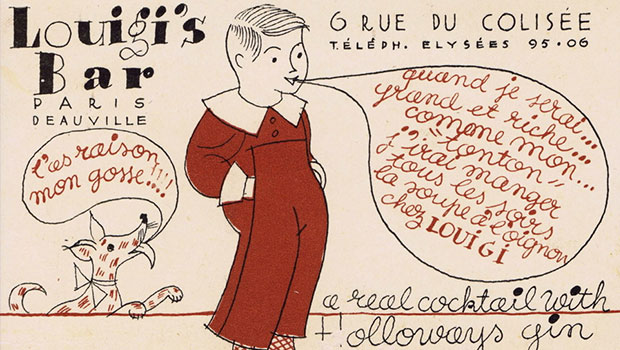 Louigi's
Bar
PARIS
DEAUVILLE
6 RUE DU COLISÉE
TÉLÉPH. ELYSÉES 95.06
t'as raison
mon gosse...!!!!
quand je serai...
grand et riche...
comme mon...
"tonton"
j'irai manger...
tous les soirs
la soupe à l'oignon
chez LOUIGI
a real cocktail with
H!olloways gin